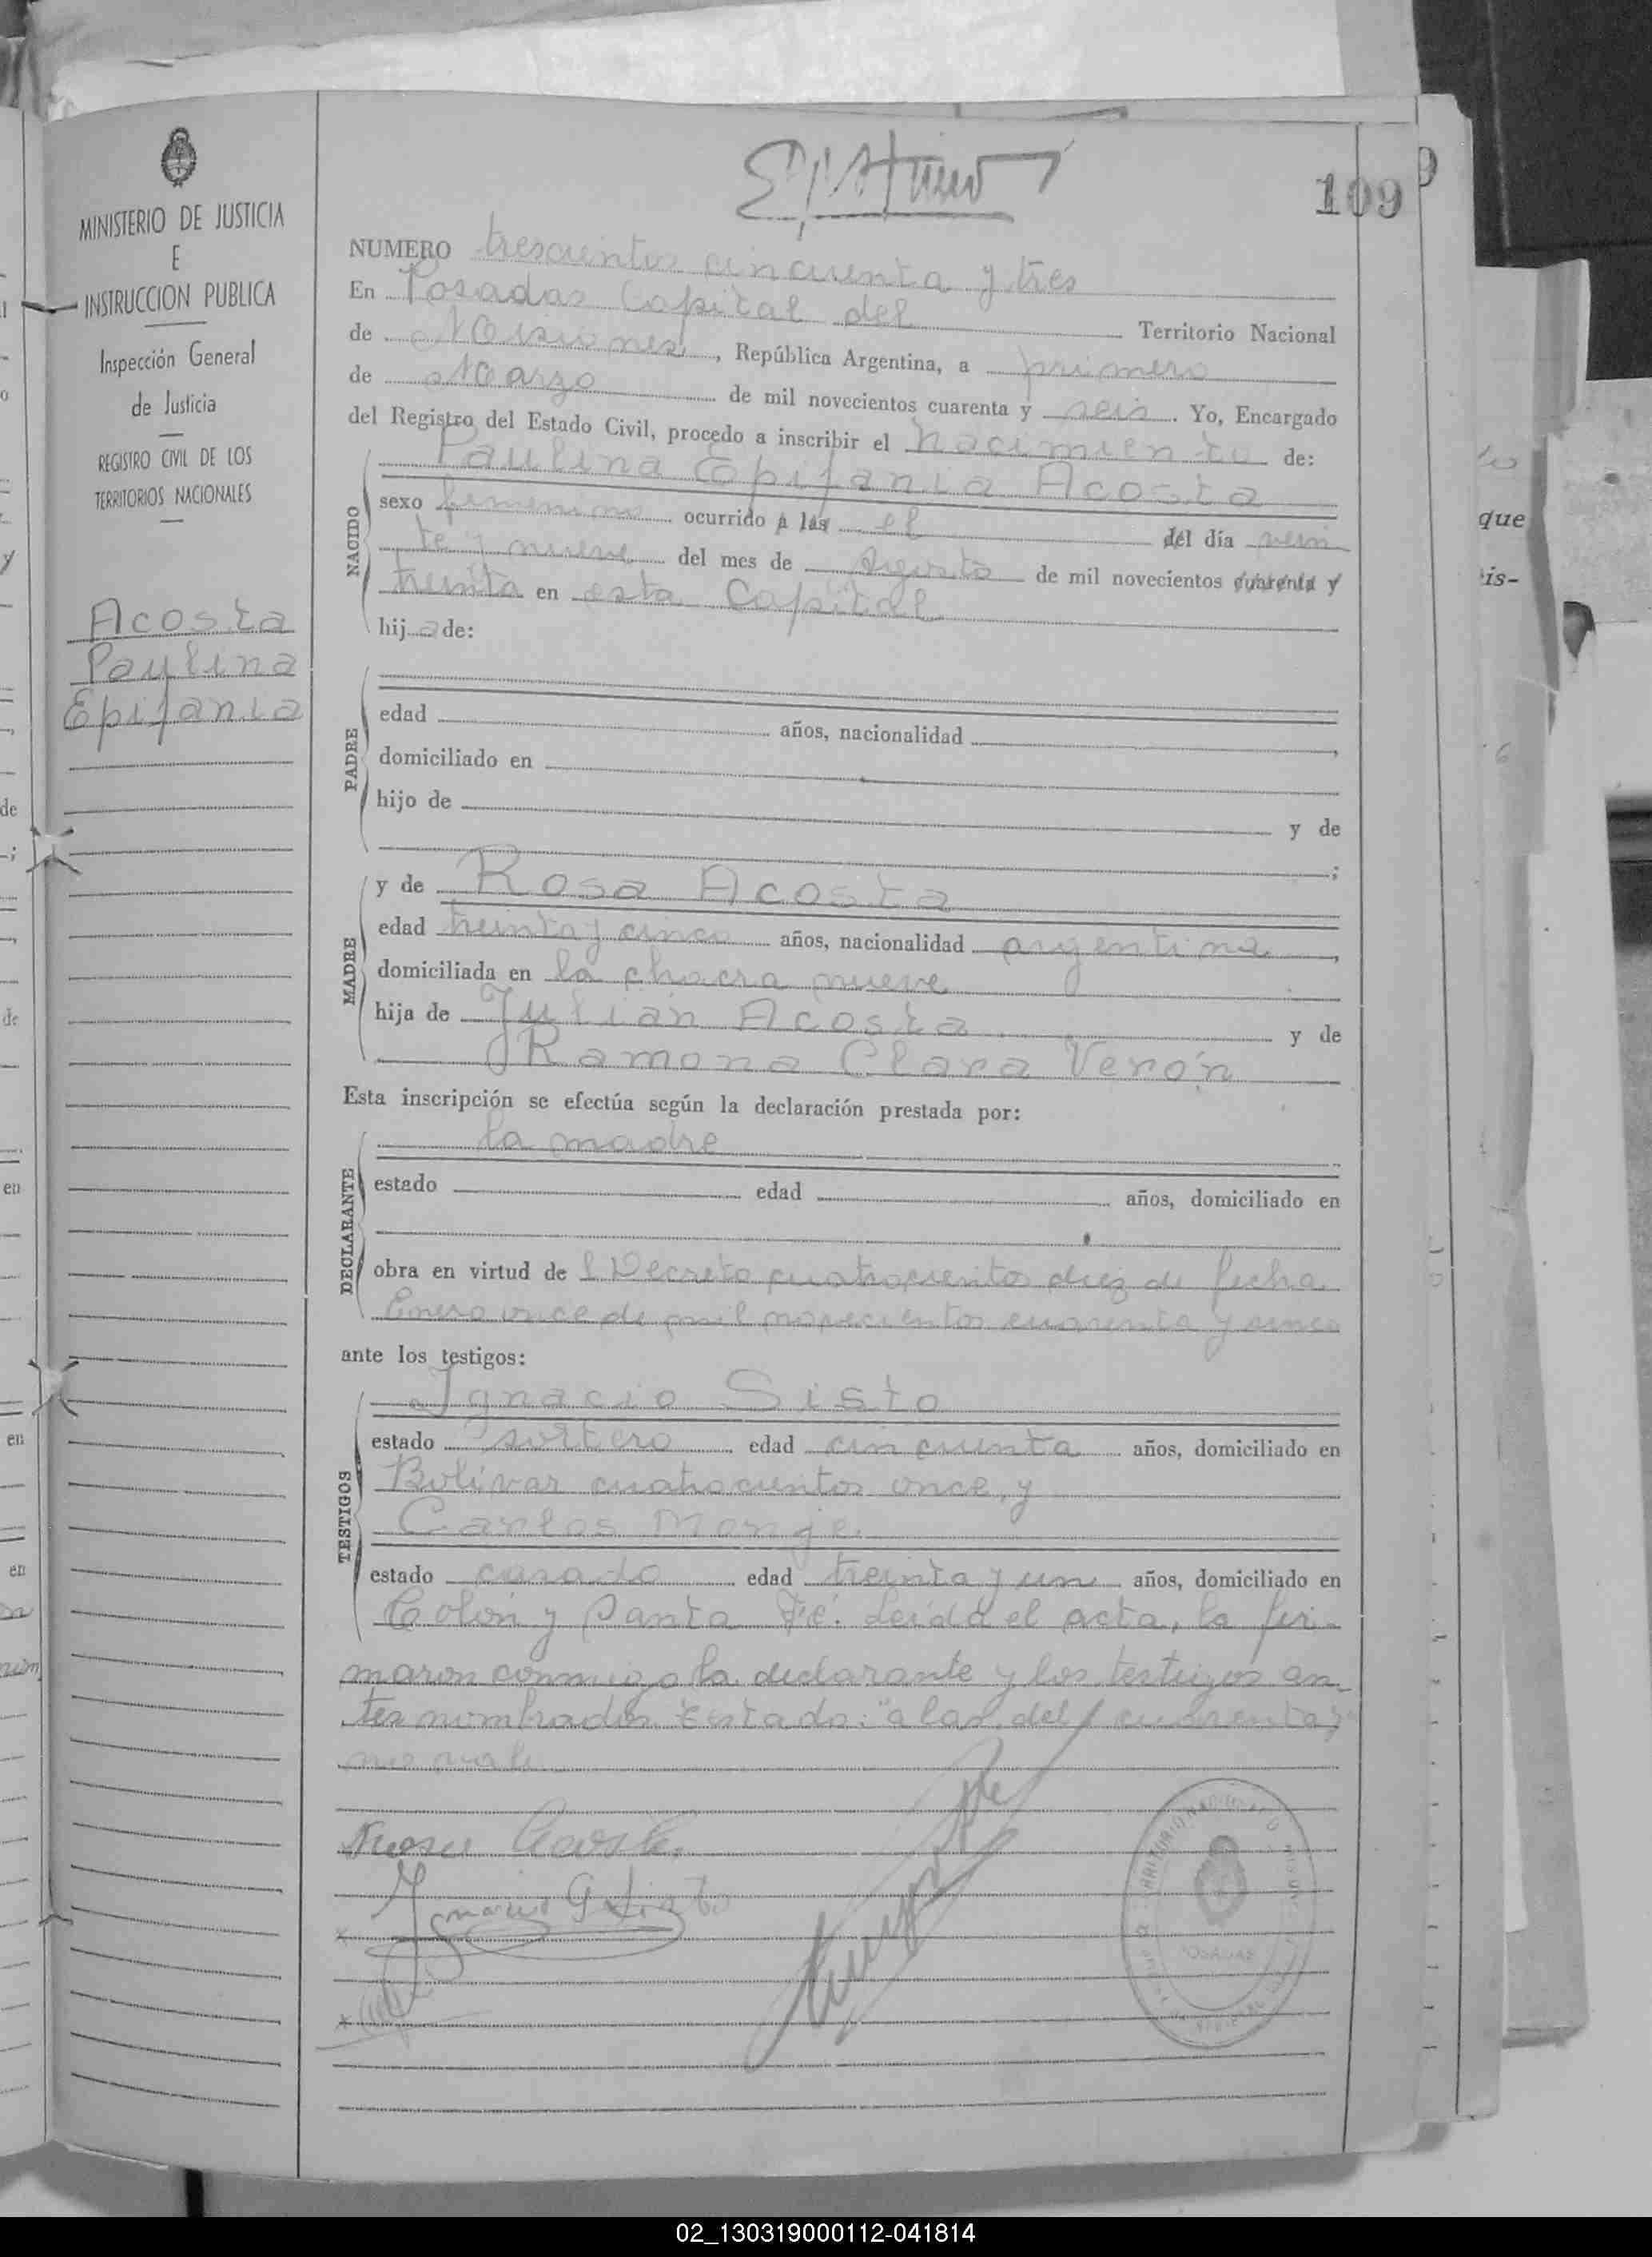 109
MINISTERIO DE JUSTICIA
E
INSTRUCCION PUBLICA
Inspección General
de Justicia
REGISTRO CIVIL DE LOS
TERRITORIOS NACIONALES
Acosta
Paulina
Epifania
NUMERO trescientos cincuenta y tres
En Posadas Capital del Territorio Nacional
de Misiones, República Argentina, a primero
de Marzo de mil novecientos cuarenta y seis. Yo, Encargado
del Registro del Estado Civil, procedo a inscribir el nacimiento de:
Paulina Epifania Acosta
NACIDO
sexo femenino ocurrido a las el del día vein
te y nueve del mes de Agosto de mil novecientos cuarenta y
treinta en esta Capital
hija de:
PADRE
edad años, nacionalidad ,
domiciliado en
hijo de y de
;
MADRE
y de Rosa Acosta
edad treinta y cinco años, nacionalidad argentina,
domiciliada en la chacra nueve
hija de Julián Acosta y de
Ramona Clara Verón
Esta inscripción se efectúa según la declaración prestada por:
DECLARANTE
la madre
estado edad años, domiciliado en
obra en virtud del Decreto cuatrocientos diez de fecha
Enero once de mil novecientos cuarenta y cinco
ante los testigos:
TESTIGOS
Ignacio Sisto
estado soltero edad cincuenta años, domiciliado en
Bolívar cuatrocientos once, y
Carlos Monje
estado casado edad treinta y un años, domiciliado en
Colón y Santa Fé. Leída el acta, la fir-
maron conmigo la declarante y los testigos an-
tes nombrados Testado: "a las, del, cuarenta,"
no vale
Rosa Acosta
Ignacio G Sisto
POSADAS
que
is-
02_130319000112-041814